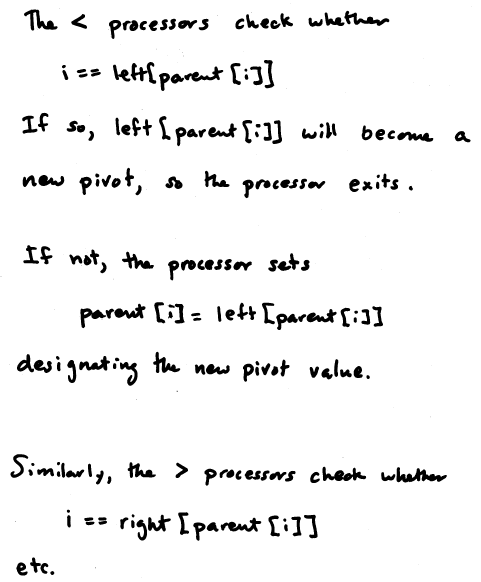 The < processors check whether
i == left[parent[i]]
If so, left[parent[i]] will become a
new pivot, so the processor exits.
If not, the processor sets
parent[i] = left[parent[i]]
designating the new pivot value.
Similarly, the > processors check whether
i == right[parent[i]]
etc.